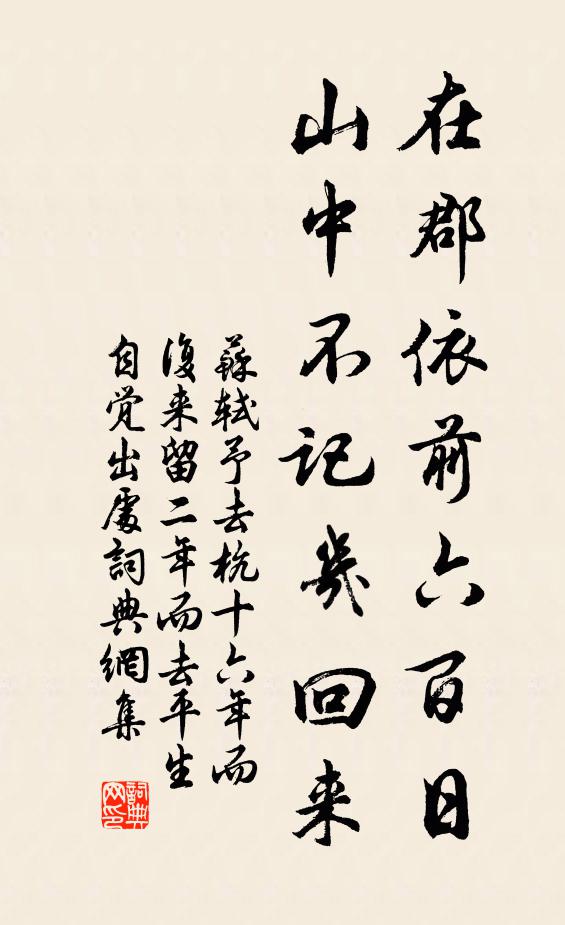 在郡依前六百日
山中不记幾回来
蘇軾予去杭十六年而
復来留二年而去平生
自觉出處詞典網集
詞典
网印